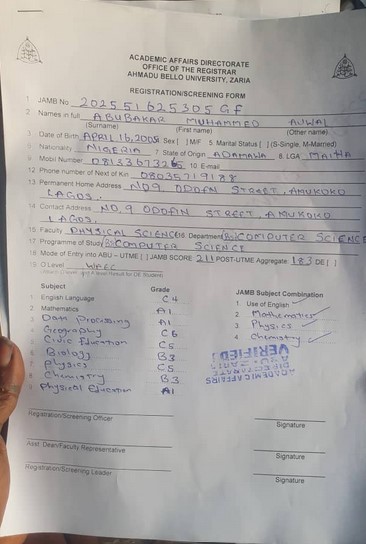 ACADEMIC AFFAIRS DIRECTORATE
OFFICE OF THE REGISTRAR
AHMADU BELLO UNIVERSITY, ZARIA
REGISTRATION/SCREENING FORM
1 JAMB No 202551625305GF
2 Names in full ABUBAKAR MUHAMMED AUWAL
(Surname) (First name) (Other name)
3 Date of Birth APRIL 16, 2005 Sex [ ] M/F 5. Marital Status [ ] (S-Single, M-Married)
Nationality NIGERIA 7 State of Origin ADAMAWA 8. LGA MAIHA
9 Mobil Number 08133673265 10. E-mail
12 Phone number of Next of Kin 08035719188
13. Permanent Home Address NO9 ODOFN STREET, AMUKOKO
LAGOS.
14 Contact Address NO, 9 ODOFIN STREET, AMUKOKO
LAGOS.
15 Faculty PHYSICAL SCIENCES 16 Department COMPUTER SCIENCE
17 Programme of Study COMPUTER SCIENCE
18. Mode of Entry into ABU – UTME [ ] JAMB SCORE 211 POST-UTME Aggregate 183 DE [ ]
19 O Level WAEC
Subject Grade
1 English Language C4
2 Mathematics A1
3 Data Processing A1
4 Geography C6
5 Civic Education C5
6 Biology B3
7 Physics C5
8 Chemistry B3
9 Physical Education A1
JAMB Subject Combination
1. Use of English
2 Mathematics
3 Physics
4 Chemistry
ACADEMIC AFFAIRS
DIRECTORATE
VERIFIED
Registration/Screening Officer
Signature
Asst. Dean/Faculty Representative
Signature
Registration/Screening Leader
Signature